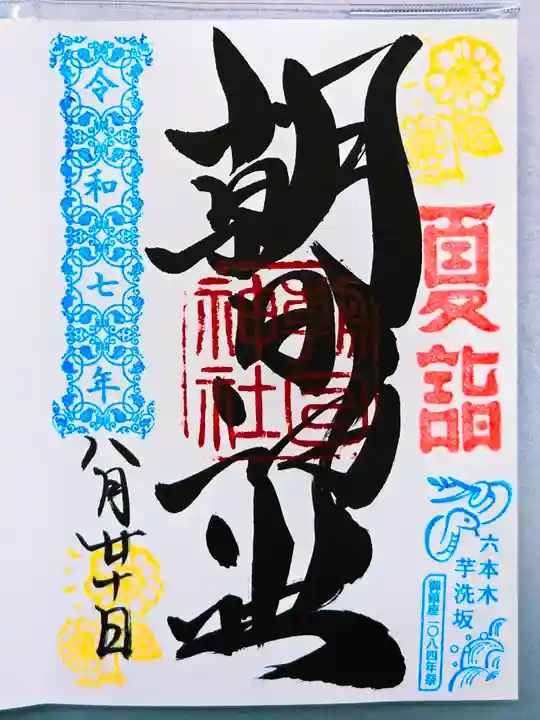 夏詣
六本木
芋洗坂
御鎮座一〇八四年祭
朝日
朝日神社
令和七年
八月廿十日